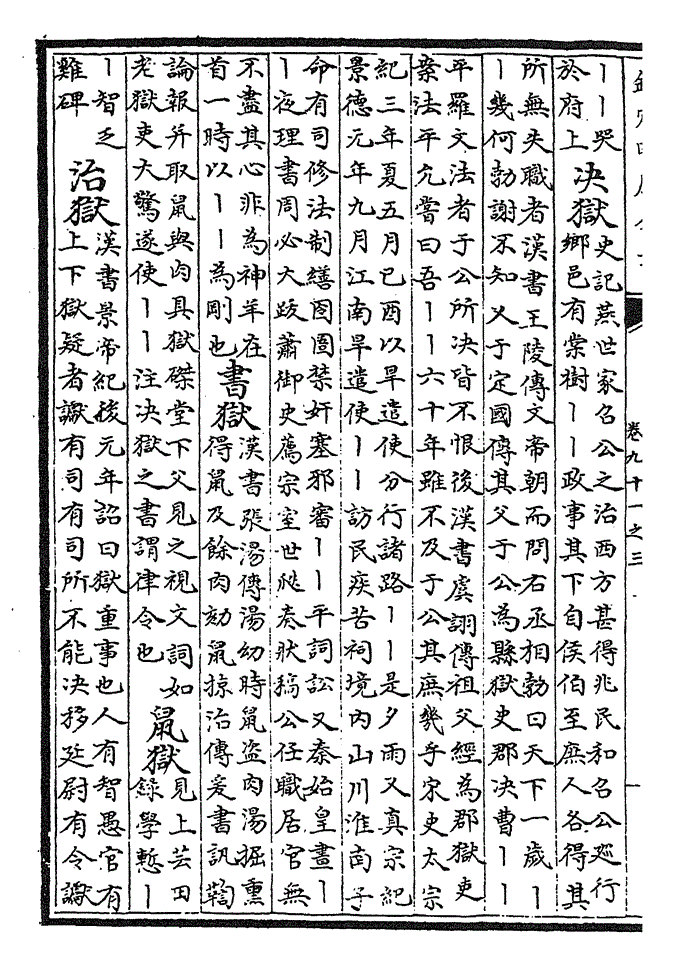 卷九十一之三
一
丨丨哭
於府上
决獄
史記燕世家召公之治西方甚得兆民和召公廵行
鄉邑有棠樹丨丨政事其下自侯伯至庶人各得其
所無失職者漢書王陵傳文帝朝而問右丞相勃曰天下一歲丨
丨幾何勃謝不知又于定國傳其父于公為縣獄史郡决曹丨丨
平羅文法者于公所决皆不恨後漢書虞詡傳祖父經為郡獄吏
案法平允嘗曰吾丨丨六十年雖不及于公其庶幾乎宋史太宗
紀三年夏五月己酉以旱遣使分行諸路丨丨是夕雨又真宗紀
景德元年九月江南旱遣使丨丨訪民疾苦祠境内山川淮南子
命有司修法制繕囹圄禁奸塞邪審丨丨平詞訟又秦始皇晝丨
丨夜理書周必大跋蕭御史廌宗室世奏狀稿公任職居官無
不盡其心非為神羊在
首一時以丨丨為剛也
書獄
漢書張湯傳湯幼時鼠盗肉湯掘熏
得鼠及餘肉劾鼠掠治傳爰書訊鞫
論報并取鼠與肉具獄磔堂下父見之視文詞如
老獄吏大驚遂使丨丨注决獄之書謂律令也
鼠獄
見上芸田
錄學慙丨
丨智乏
難碑
治獄
漢書景帝紀後元年詔曰獄重事也人有智愚官有
上下獄疑者讞有司有司所不能决移廷尉有令讞